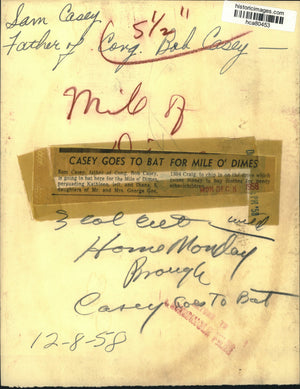 historicimages.com
hca80453
Sam Casey
5 1/2"
Father of Cong. Bob Casey —
Mile of
CASEY GOES TO BAT FOR MILE O' DIMES
Sam Casey, father of Cong. Bob Casey,
is going to bat here for the Mile o' Dimes,
persuading Kathleen, left, and Diana, 8,
daughters of Mr. and Mrs. George Gee,
1904 Craig, to chip in on the drive which
raises money to buy clothes for needy
schoolchildren.
3 col cut
Home Monday
Brough
Casey Goes To Bat
12-8-58